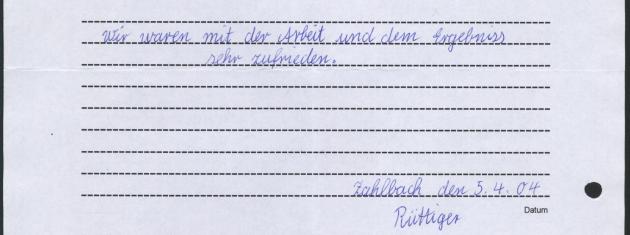 Wir waren mit der Arbeit und dem Ergebniss
sehr zufrieden.
Zahlbach den 5.4.04
Datum
Rüttiger